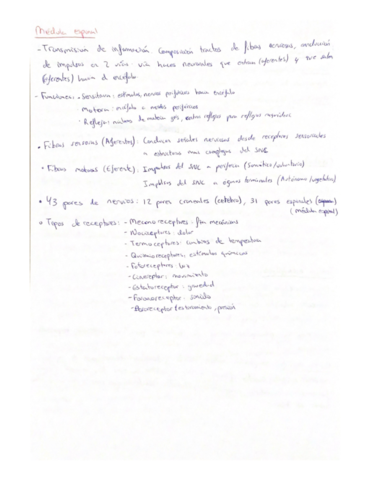 Médula espinal
- Transmisión de información. Composición tractos de fibras nerviosas, conducción
de impulsos en 2 vías: vía haces neuronales que entran (aferentes) y que salen
(eferentes) hacia el encéfalo
- Funciones: - Sensitiva: estímulos, nervios periféricos hacia encéfalo
- Motora: encéfalo a nervios periféricos
- Refleja: materia gris, reflejos
• Fibras sensoras (Aferentes): Conducen señales nerviosas desde receptores sensoriales
a estructuras más complejas del SNC
• Fibras motoras (Eferente): Impulsos del SNC a periferia (Somático/voluntario)
Impulsos del SNC a órganos terminales (Autónomo/vegetativo)
• 43 pares de nervios: 12 pares craneales (cerebro), 31 pares espinales
(médula espinal)
• Tipos de receptores: - Mecanoreceptores: mecánicos
- Nociceptores: dolor
- Termoreceptores: cambios de temperatura
- Quimioreceptores: estímulos químicos
- Fotoreceptores: luz
- movimiento
- Estatoreceptor: gravedad
- Fonoreceptor: sonido
- Baroreceptor: presión